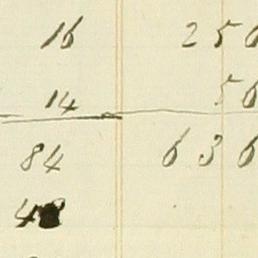 16 256
14 56
84 636
4